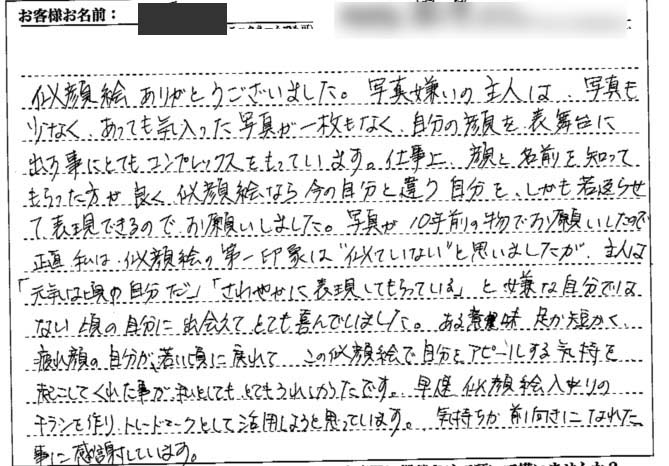 お客様お名前：
似顔絵ありがとうございました。写真嫌いの主人は、写真も
少なく、あっても気に入った写真が一枚もなく、自分の顔を表舞台に
出す事にとてもコンプレックスをもっています。仕事上、顔と名前を知って
もらった方が良く似顔絵なら今の自分と違う自分を、しかも若返らせ
て表現できるのでお願いしました。写真が10年前の物でお願いしたので
正直私は、似顔絵の第一印象は"似ていない"と思いましたが、主人は
「元気な頃の自分だ」「さわやかに表現してもらっている」と嫌な自分では
ない頃の自分に出会えてとても喜んでいました。ある意味足が短かく、
疲れ顔の自分が、若い頃に戻れてこの似顔絵で自分をアピールする気持を
起こしてくれた事が、私としてもとてもうれしかったです。早速似顔絵入りの
チラシを作り、トレードマークとして活用しようと思っています。気持ちが前向きになれた
事に感謝しています。